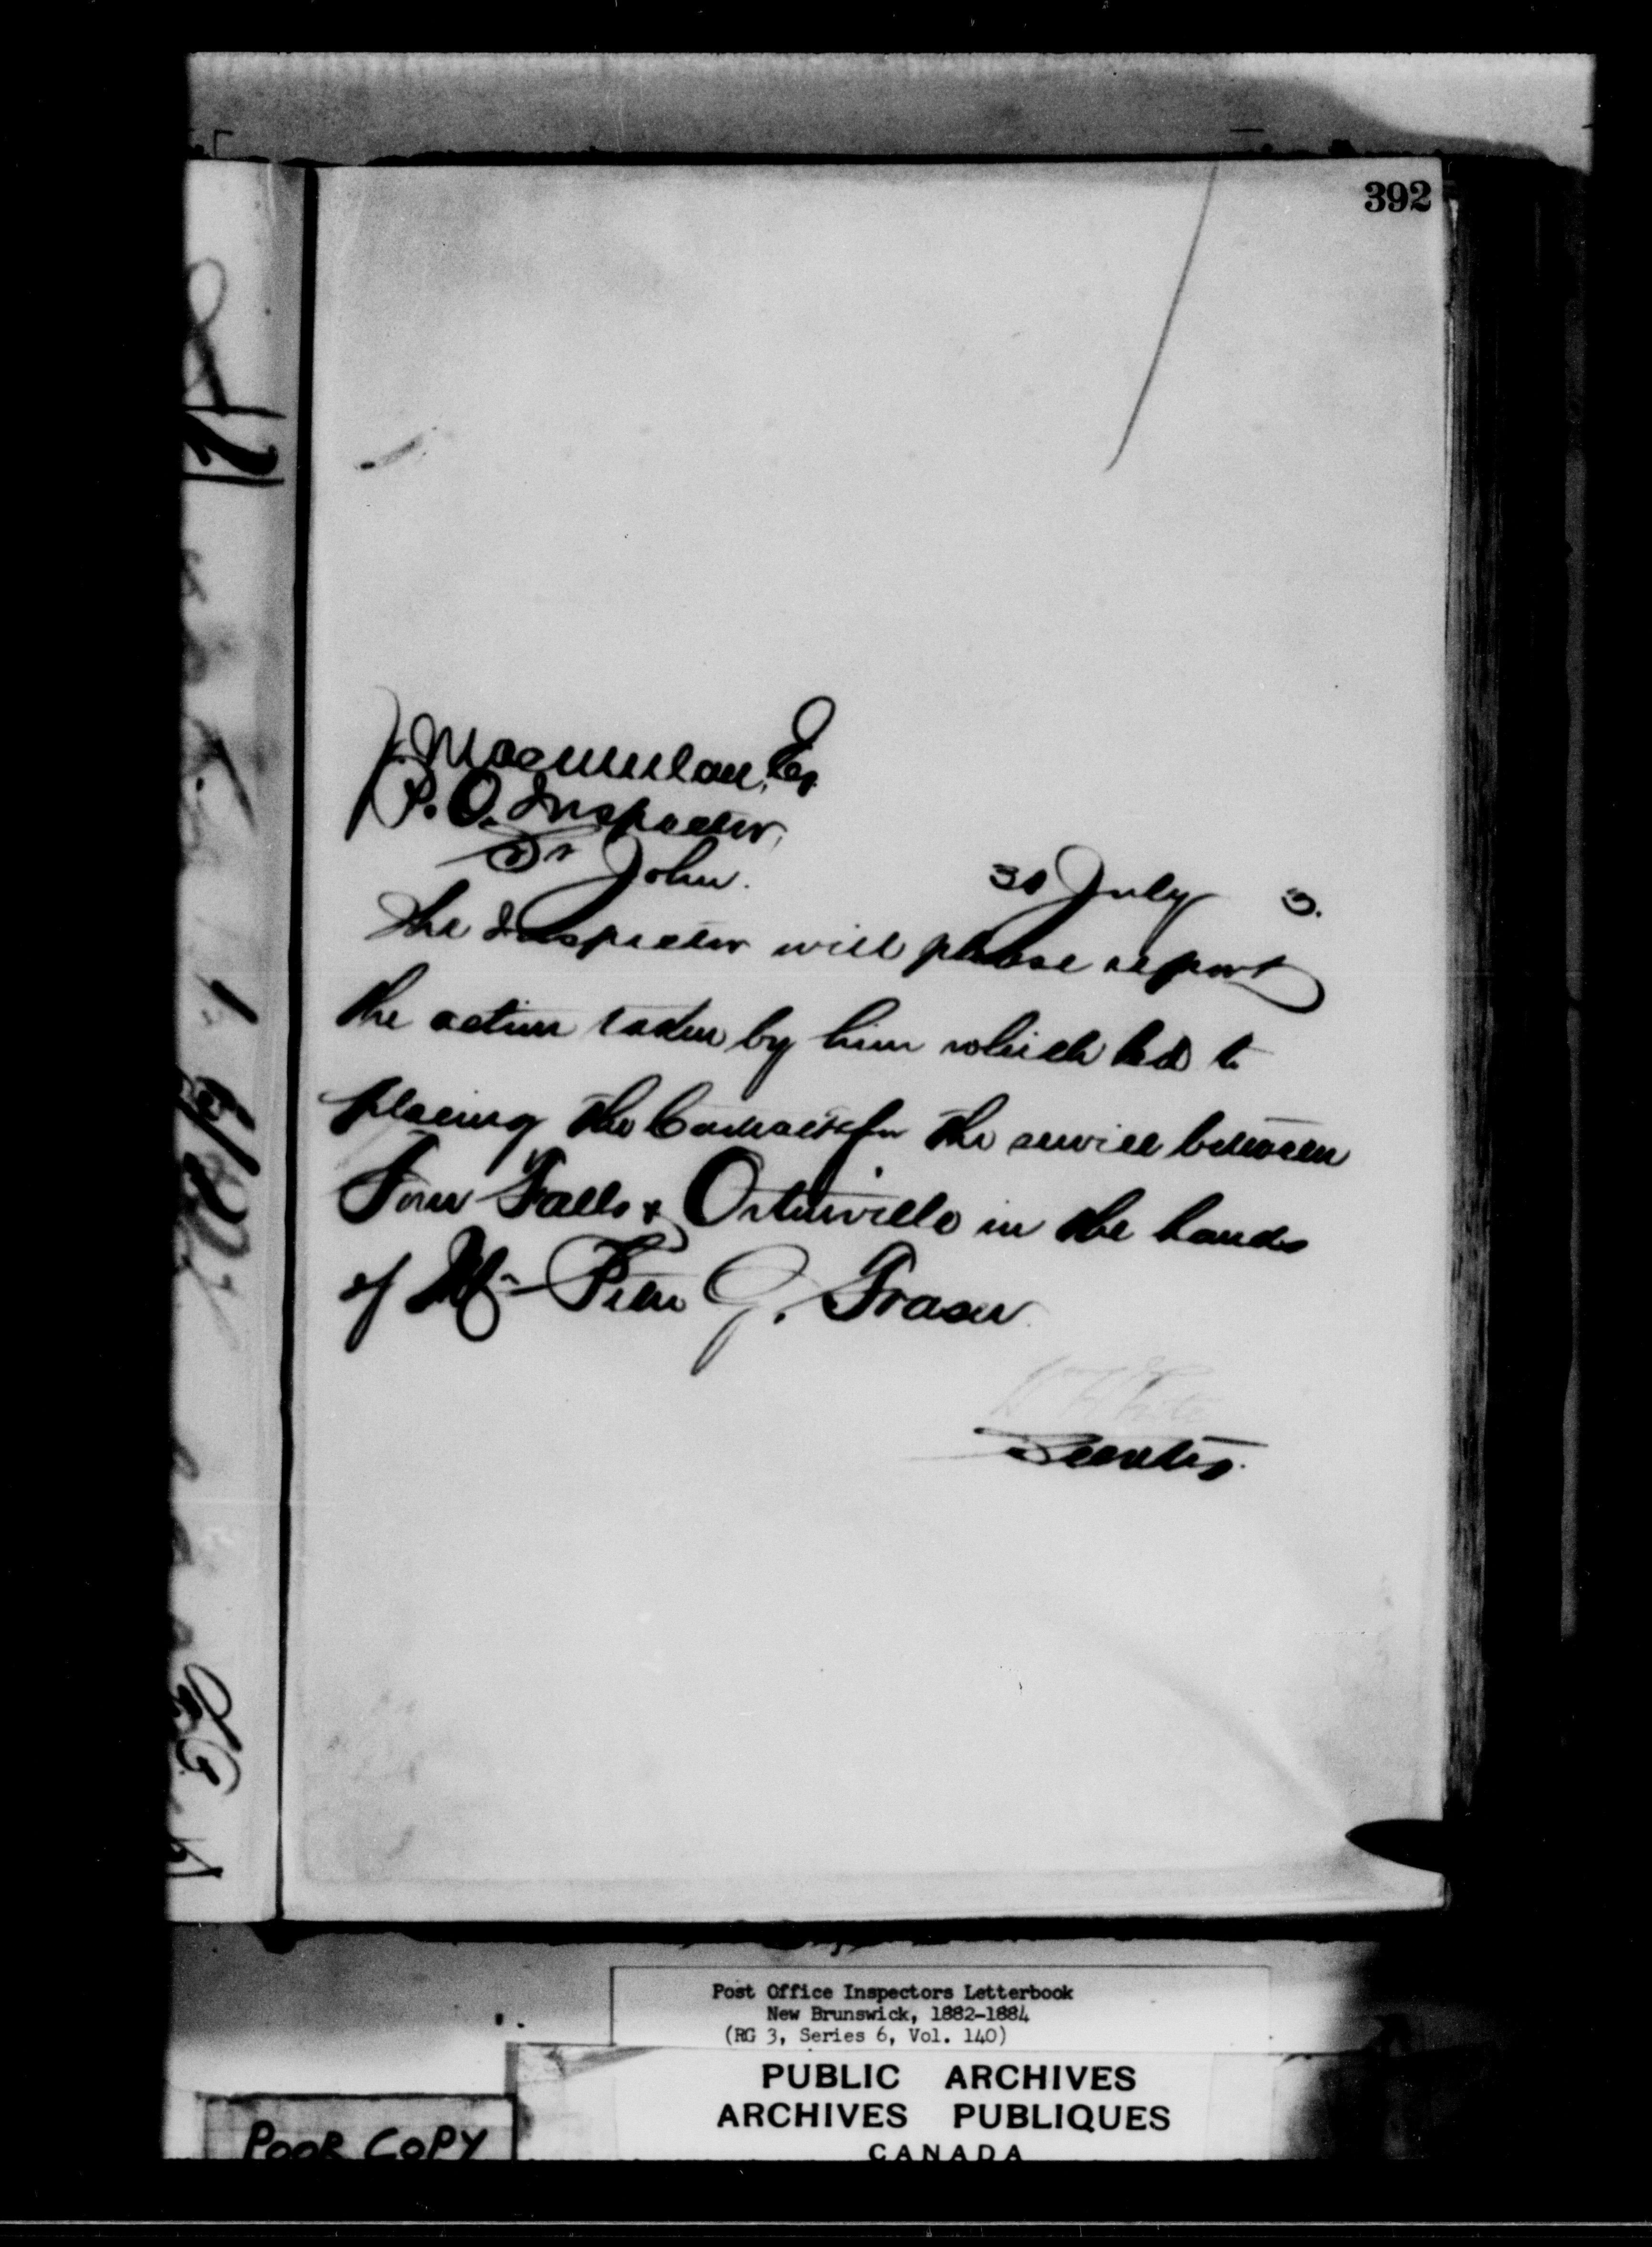 392
J. Macmillan, Esq
P. O. Inspector,
St John.
30 July 3.
The Inspector will please report
the action taken by him which led to
placing the Contract for the service between
Four Falls & Ortonville in the hands
of Mr Peter G. Fraser
W White
Secretary.
Post Office Inspectors Letterbook
New Brunswick, 1882-1884
(RG 3, Series 6, Vol. 140)
PUBLIC ARCHIVES
ARCHIVES PUBLIQUES
CANADA
POOR COPY